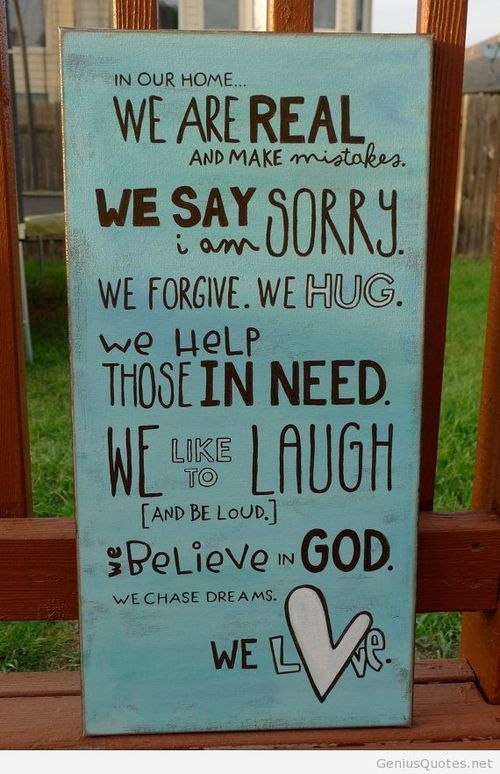 IN OUR HOME...
WE ARE REAL
AND MAKE mistakes.
WE SAY SORRY.
i am
WE FORGIVE. WE HUG.
we HeLP
THOSE IN NEED.
WE LIKE TO LAUGH
[AND BE LOUD.]
we BeLieve IN GOD.
WE CHASE DREAMS.
WE LOve.
GeniusQuotes.net